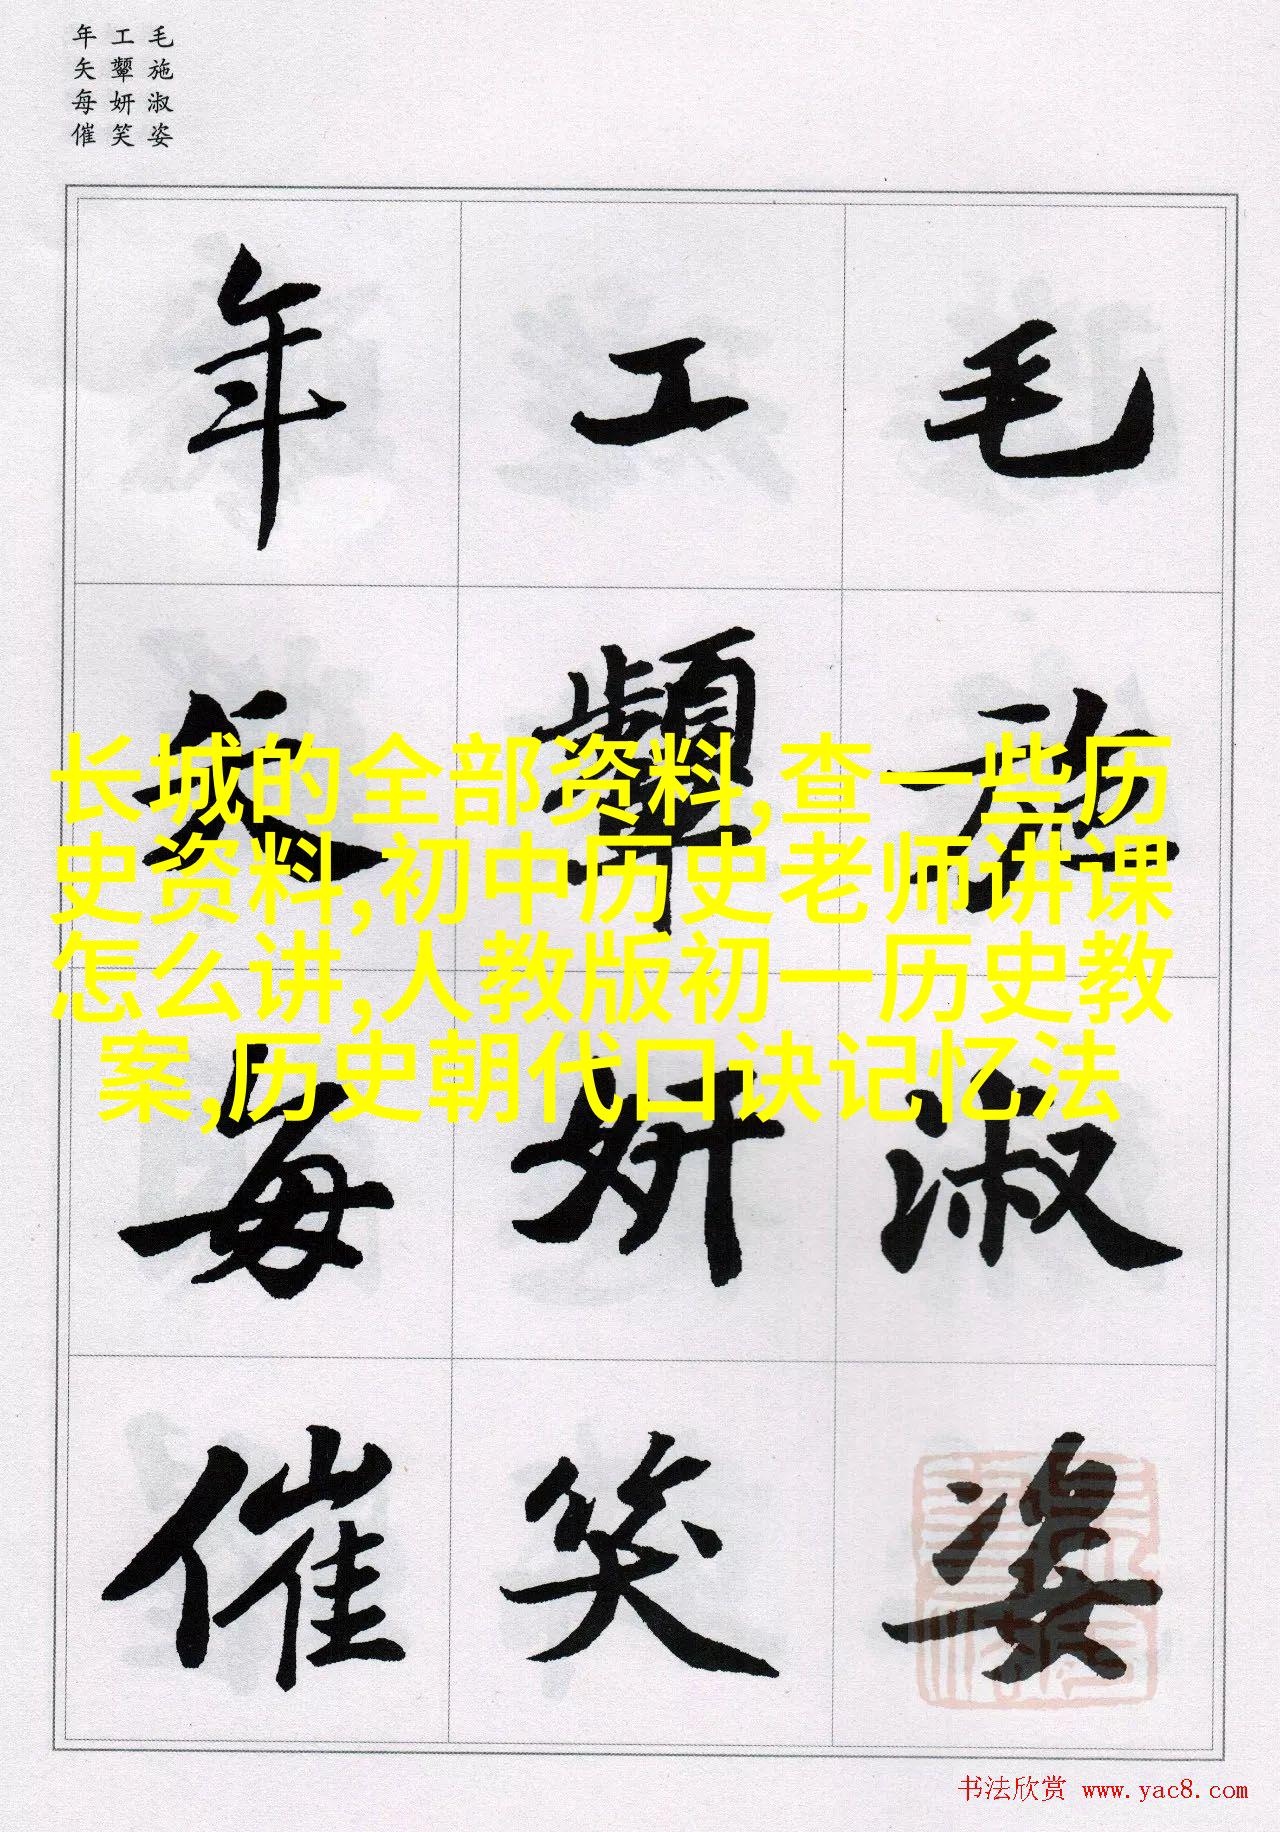 毛施淑姿
工颦妍笑
年矢每催
毛施淑姿
工颦妍笑
年矢每催
长城的全部资料,查一些历
史资料,初中历史老师讲课
怎么讲,人教版初一历史教
案,历史朝代口诀记忆法
书法欣赏 www.yac8.com